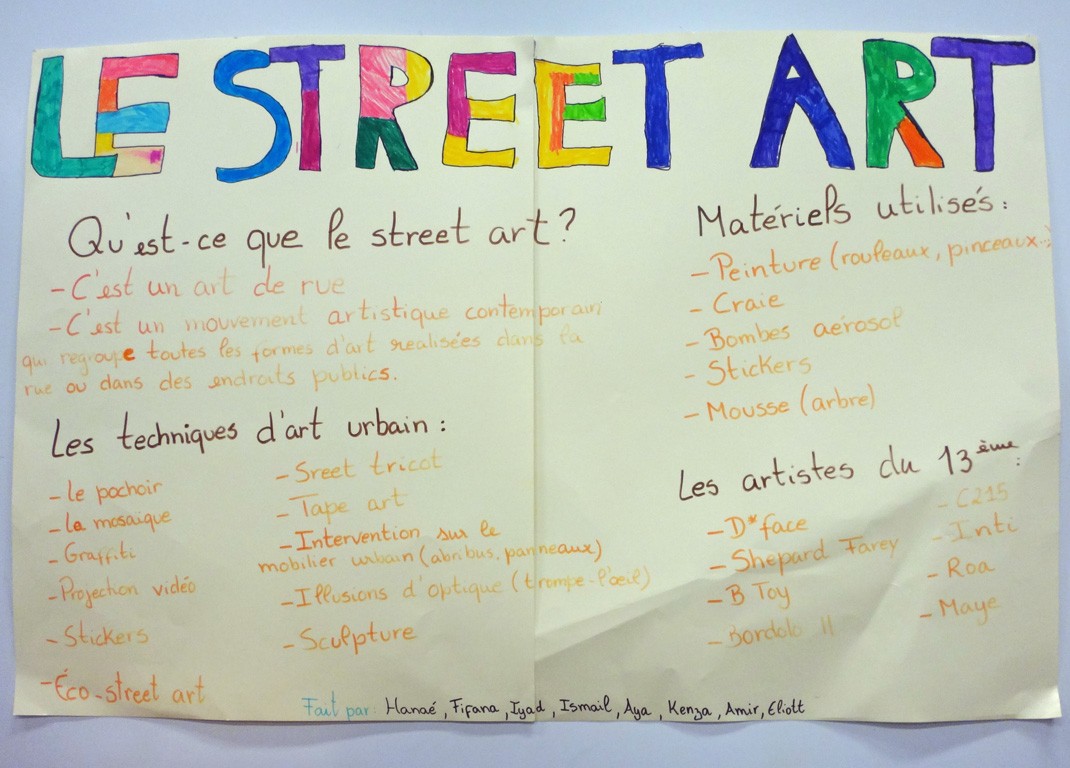 LE STREET ART
Qu'est-ce que le street art?
- C'est un art de rue
- C'est un mouvement artistique contemporain
qui regroupe toutes les formes d'art realisées dans la
rue ou dans des endroits publics.
Les techniques d'art urbain :
- le pochoir
- la mosaique
- Graffiti
- Projection vidéo
- Stickers
- Éco-street art
- Sreet tricot
- Tape art
- Intervention sur le
mobilier urbain (abribus, panneaux)
- Illusions d'optique (trompe-l'œil)
- Sculpture
Matériels utilisés :
- Peinture (rouleaux, pinceaux..)
- Craie
- Bombes aérosol
- Stickers
- Mousse (arbre)
Les artistes du 13ème :
- D*face
- Shepard Farey
- B Toy
- Bordolo II
- C215
- Inti
- Roa
- Maye
Fait par: Hanaé, Fifana, Iyad, Ismail, Aya, Kenza, Amir, Eliott